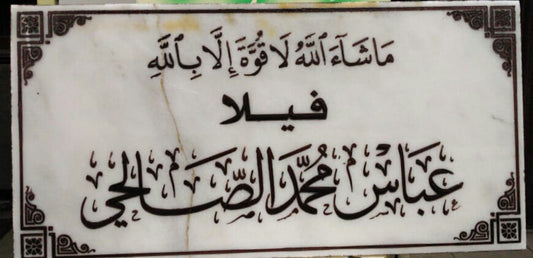 مَا شَآءَ ٱللَّهُ لَا قُوَّةَ إِلَّا بِٱللَّهِ
فيلا
عَبَّاسْ مُحَمَّدْ الصَّالِحِي